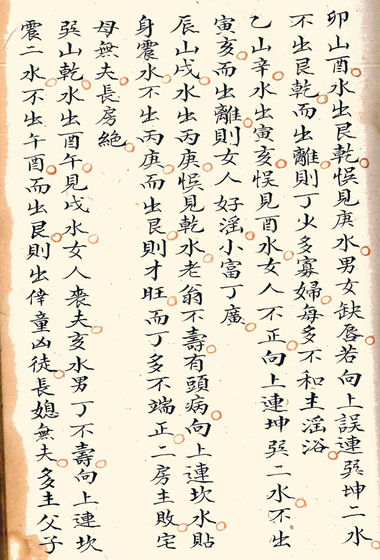 卯山酉水出艮乾悮見庚水男女缺唇若向上誤連巽坤二水
不出艮乾而出離則丁火多寡婦每多不和主淫浴
乙山辛水出寅亥悮見酉水女人不正向上連坤巽二水不出
寅亥而出離則女人好淫小富丁廣
辰山戌水出丙庚悮見乾水老翁不壽有頭病向上連坎水貼
身震水不出丙庚而出艮則才旺而丁多不端正二房主敗宅
母無夫長房絶
巽山乾水出酉午見戌水女人喪夫亥水男丁不壽向上連坎
震二水不出午酉而出艮則出倖童凶徒長媳無夫多主父子